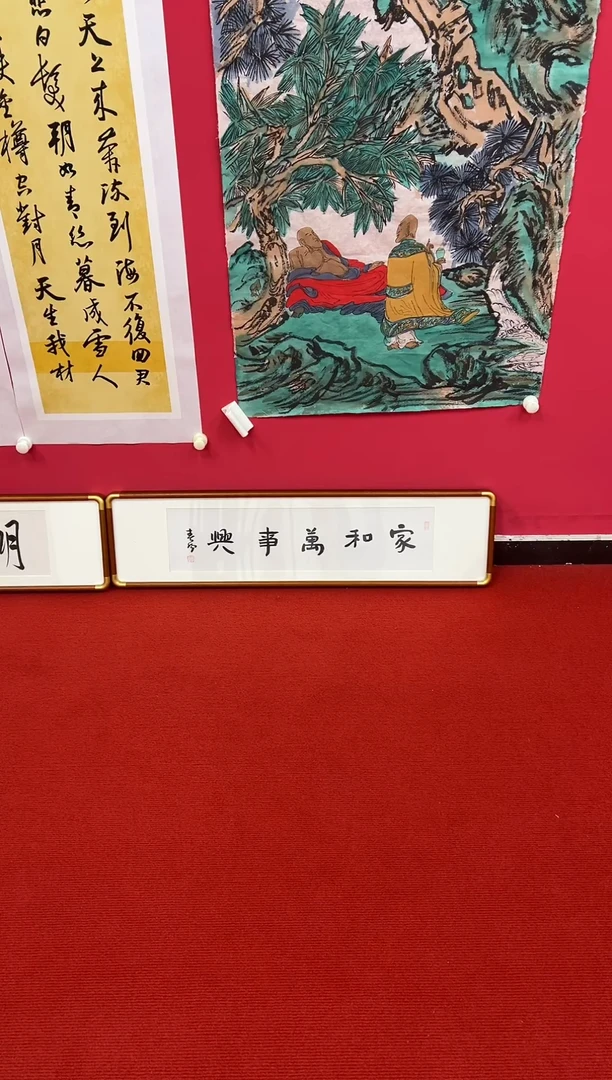 天上来奔流到海不復回君
白髮朝如青絲暮成雪人
金樽空對月天生我材
家和萬事興